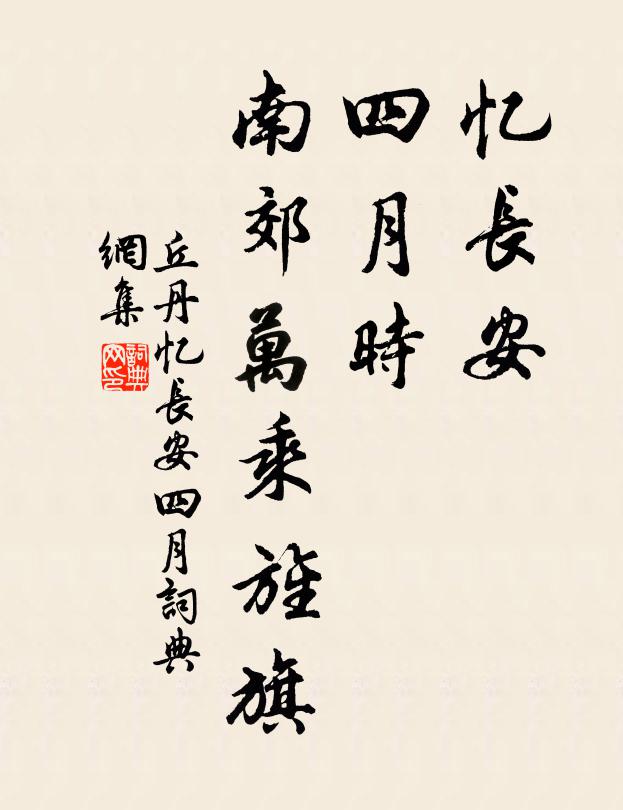 忆長安
四月時
南郊萬乘旌旗
丘丹忆長安四月詞典
網集
詞典网印